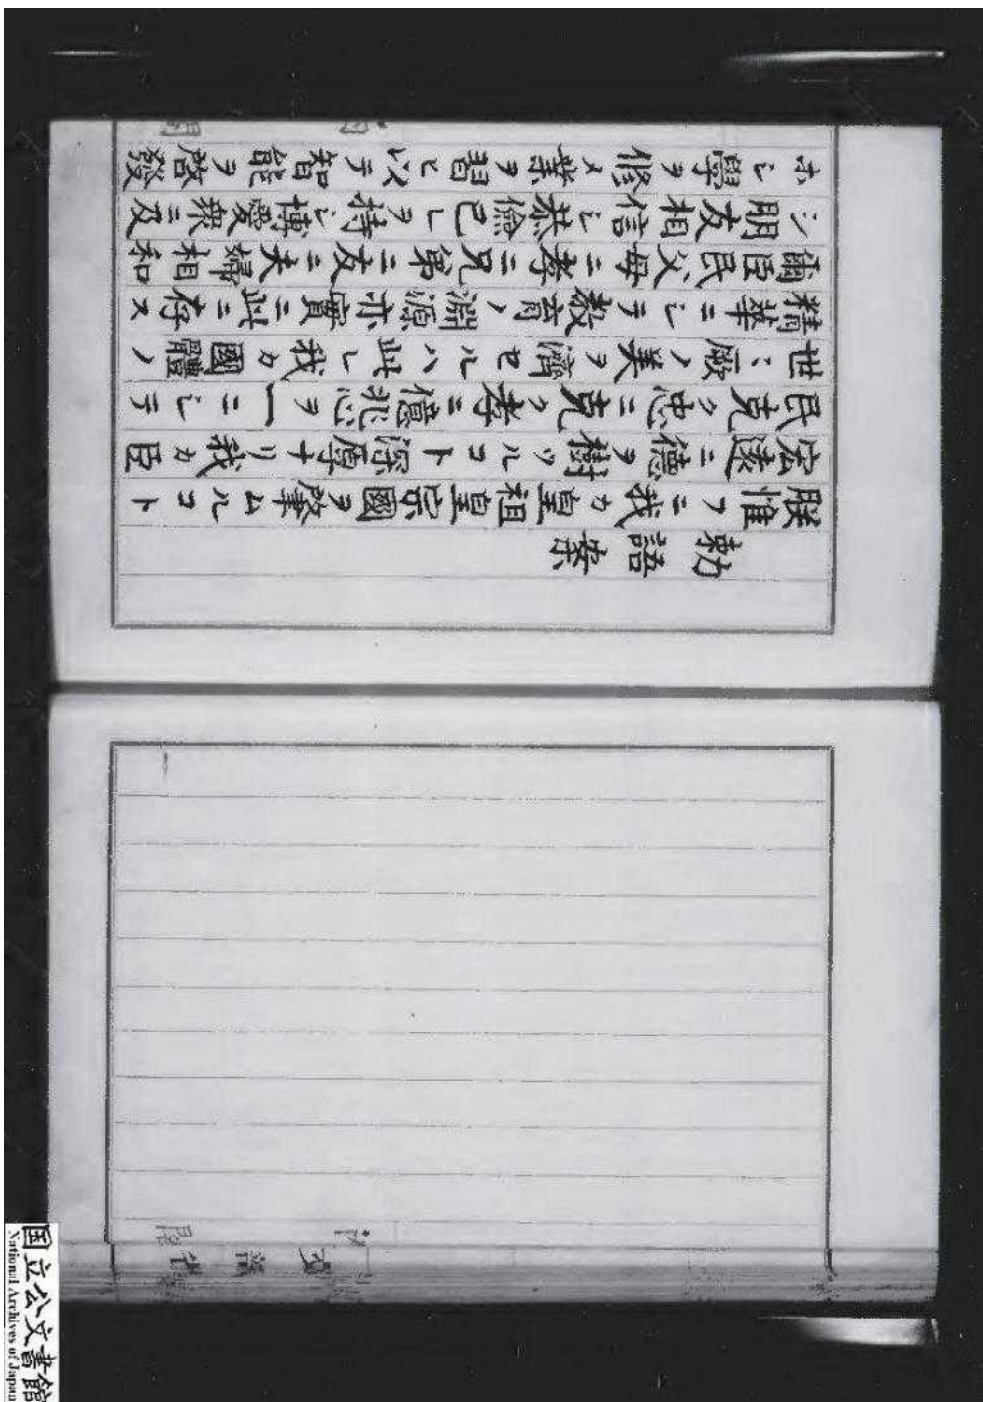 勅語案
朕惟フニ我カ皇祖皇宗國ヲ肇ムルコト
宏遠ニ德ヲ樹ツルコト深厚ナリ我カ臣
民克ク忠ニ克ク孝ニ億兆心ヲ一ニシテ
世〻厥ノ美ヲ濟セルハ此レ我カ國體ノ
精華ニシテ教育ノ淵源亦實ニ此ニ存ス
爾臣民父母ニ孝ニ兄弟ニ友ニ夫婦相和
シ朋友相信シ恭儉己レヲ持シ博愛衆ニ及
ホシ學ヲ修メ業ヲ習ヒ以テ智能ヲ啓發
国立公文書館
National Archives of Japan